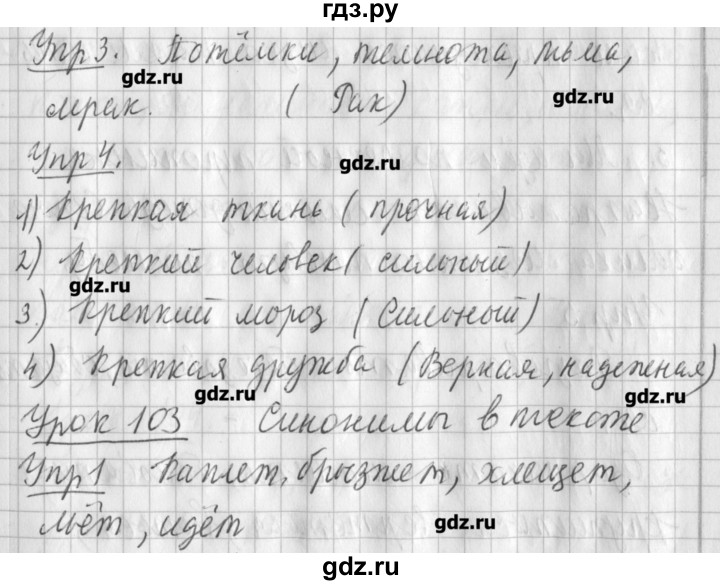 гдз.ру
Упр 3. Потёмки, темнота, тьма,
gdz.ru
мрак. ( Рак)
gdz.ru
Упр 4.
gdz.ru
1) Крепкая ткань ( прочная)
2) Крепкий человек ( сильный)
gdz.ru
3) Крепкий мороз ( Сильный)
4) Крепкая дружба (Верная, надежная)
gdz.ru
gdz.ru
Урок 103 Синонимы в тексте
Упр 1 Каплет, брызжет, хлещет,
льёт, идёт
gdz.ru
gdz.ru